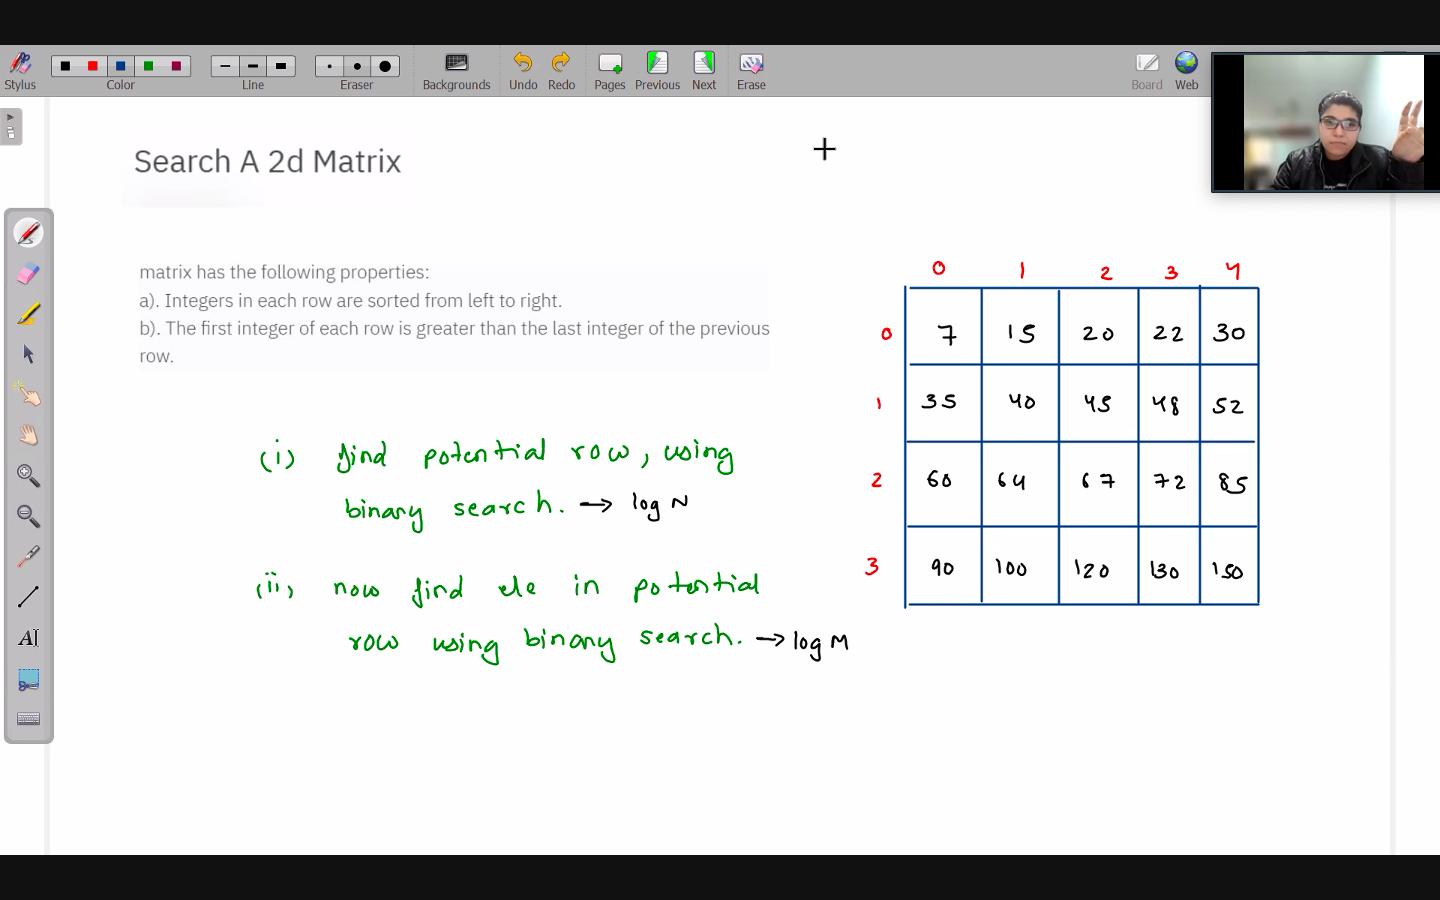 Stylus
Color
Line
Eraser
Backgrounds
Undo
Redo
Pages
Previous
Next
Erase
Board
Web
Search A 2d Matrix
matrix has the following properties:
a). Integers in each row are sorted from left to right.
b). The first integer of each row is greater than the last integer of the previous
row.
(i) find potential row, using
binary search. → log N
(ii) now find ele in potential
row using binary search. → log M
0 1 2 3 4
0 7 15 20 22 30
1 35 40 45 48 52
2 60 64 67 72 85
3 90 100 120 130 150
AI